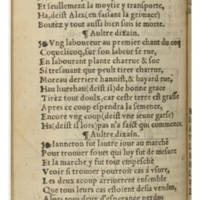 Et seullement la moytie y transporte,
Ha, deist Alix (en faisant la grimace)
Boutez y tout aussi bien suis ie morte.
¶ Aultre dixain.
Vng laboureur au premier chant du coq
Coquelicoq, sur son labeur se rue,
En labourant plante charrue & soc
Si tresauant que peult tirer charrue,
Moreau derriere hannist, & bayard rue,
Hau hurehau (deist il) de bonne grace
Tirez tout doulx, car ceste terre est grasse
Apres ce coup espendit la semence,
Encore vng coup (deist vne seure garse)
Ha (deist il) pas n'a faict qui commence.
¶ Aultre dixain.
Ianneton fut lautre iour au marché
Pour trouuer fouet qui luy fut de mesure
Et la marche y fut tout empesché
Veoir si trouuer pourroit cas s'vsure,
Les deux acoup arriuerent ensemble
Que tous leurs cas estoient desia vendu,